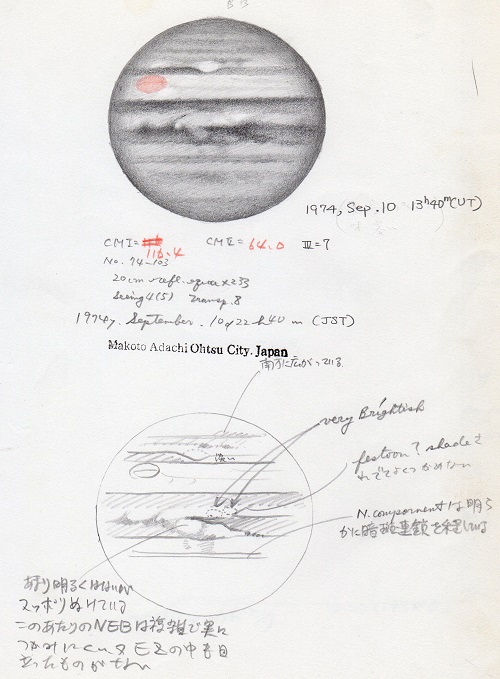 1974, Sep. 10 13h40m(UT)
CMI= 116.4 CMII= 64.0 III=7
No. 74-103
20cm refl. x233
Seeing 4(5) Transp. 8
1974y. September. 10d 22h40m (JST)
Makoto Adachi Ohtsu City. Japan
南方に広がっている
very Brightish
淡い
festoon? shade
N. component は明ら
かに暗
あまり明るくはないが
スッポリぬけている
このあたりのNEBは複雑で実に
つかみにくい EZの中も目
立ったものがない